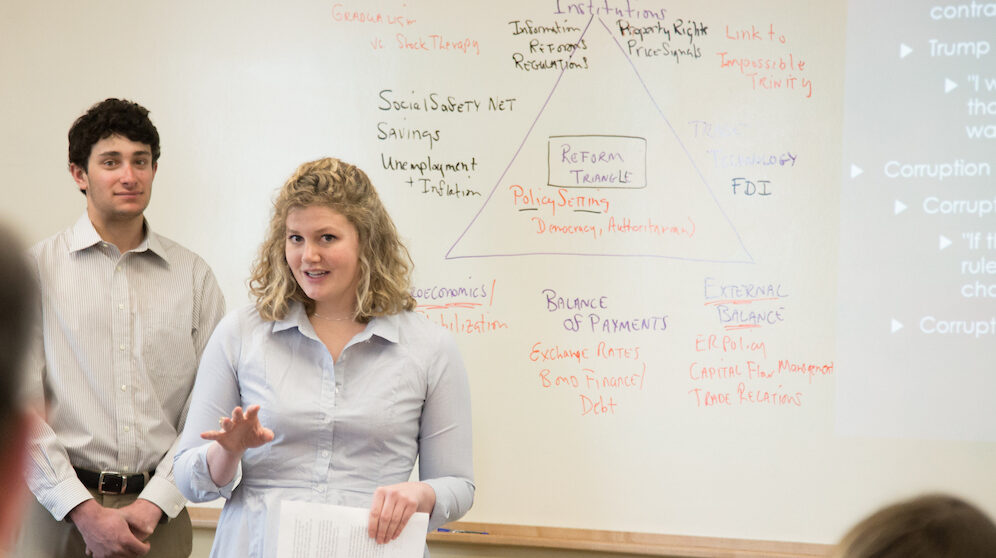 Institutions
GRADUALISM
vs. Shock Therapy
Information
REFORMS
REGULATIONS
Property Rights
Price Signals
Link to
Impossible
TRINITY
Social Safety NET
Savings
Unemployment
+ Inflation
REFORM
TRIANGLE
Policy Setting
Democracy, Authoritarian)
TECHNOLOGY
FDI
ROECONOMICS/
bilization
BALANCE
OF PAYMENTS
Exchange Rates
Bond Finance/
Debt
EXTERNAL
BALANCE
ER Policy
CAPITAL Flow Management
TRADE RELATIONS
contra
Trump
"I w
tha
wa
Corruption
Corrupt
"If th
rule
cha
Corrupt